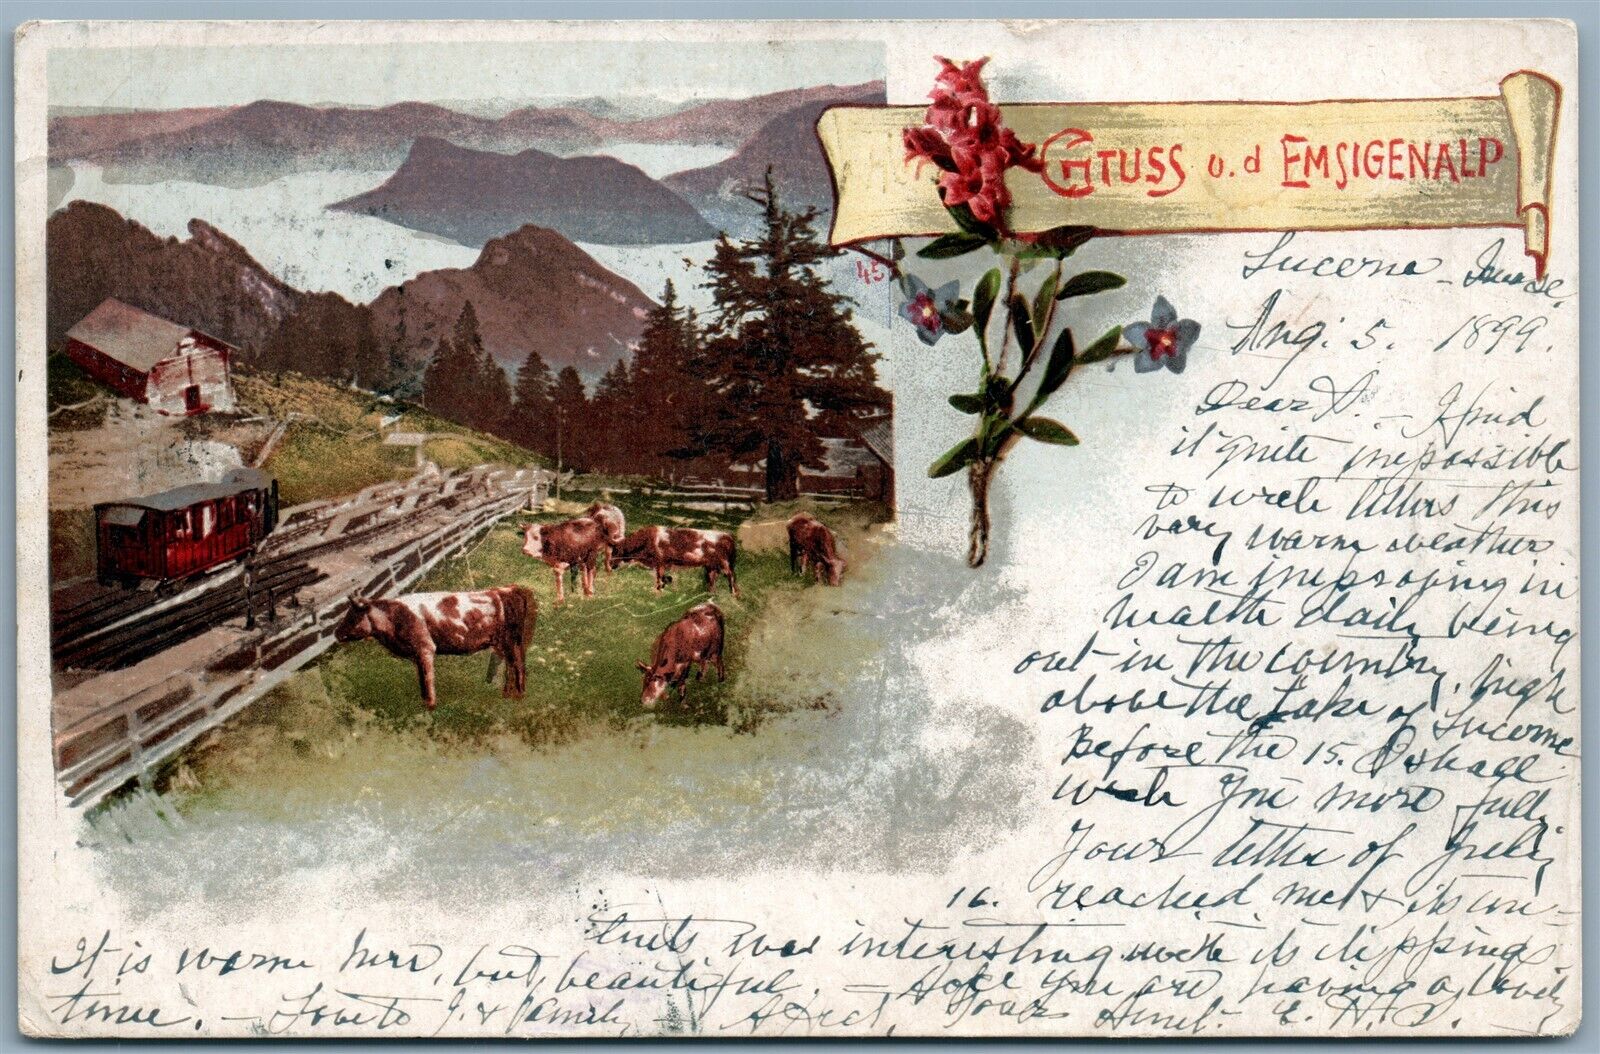 GRUSS v. d EMSIGENALP
45
Lucerne -
Aug: 5. 1899.
Dear A. - I find
it quite impossible
to write letters this
very warm weather
I am improving in
health daily being
out in the country, high
above the Lake of Lucerne
Before the 15. I shall
write you more fully
Your letter of July
16. reached me & its con-
tents was interesting with its clippings
It is warm here, but beautiful. - Hope you are having a lovely
time. - Love to J. & Family - Affect. Your Aunt. E. H. D. -